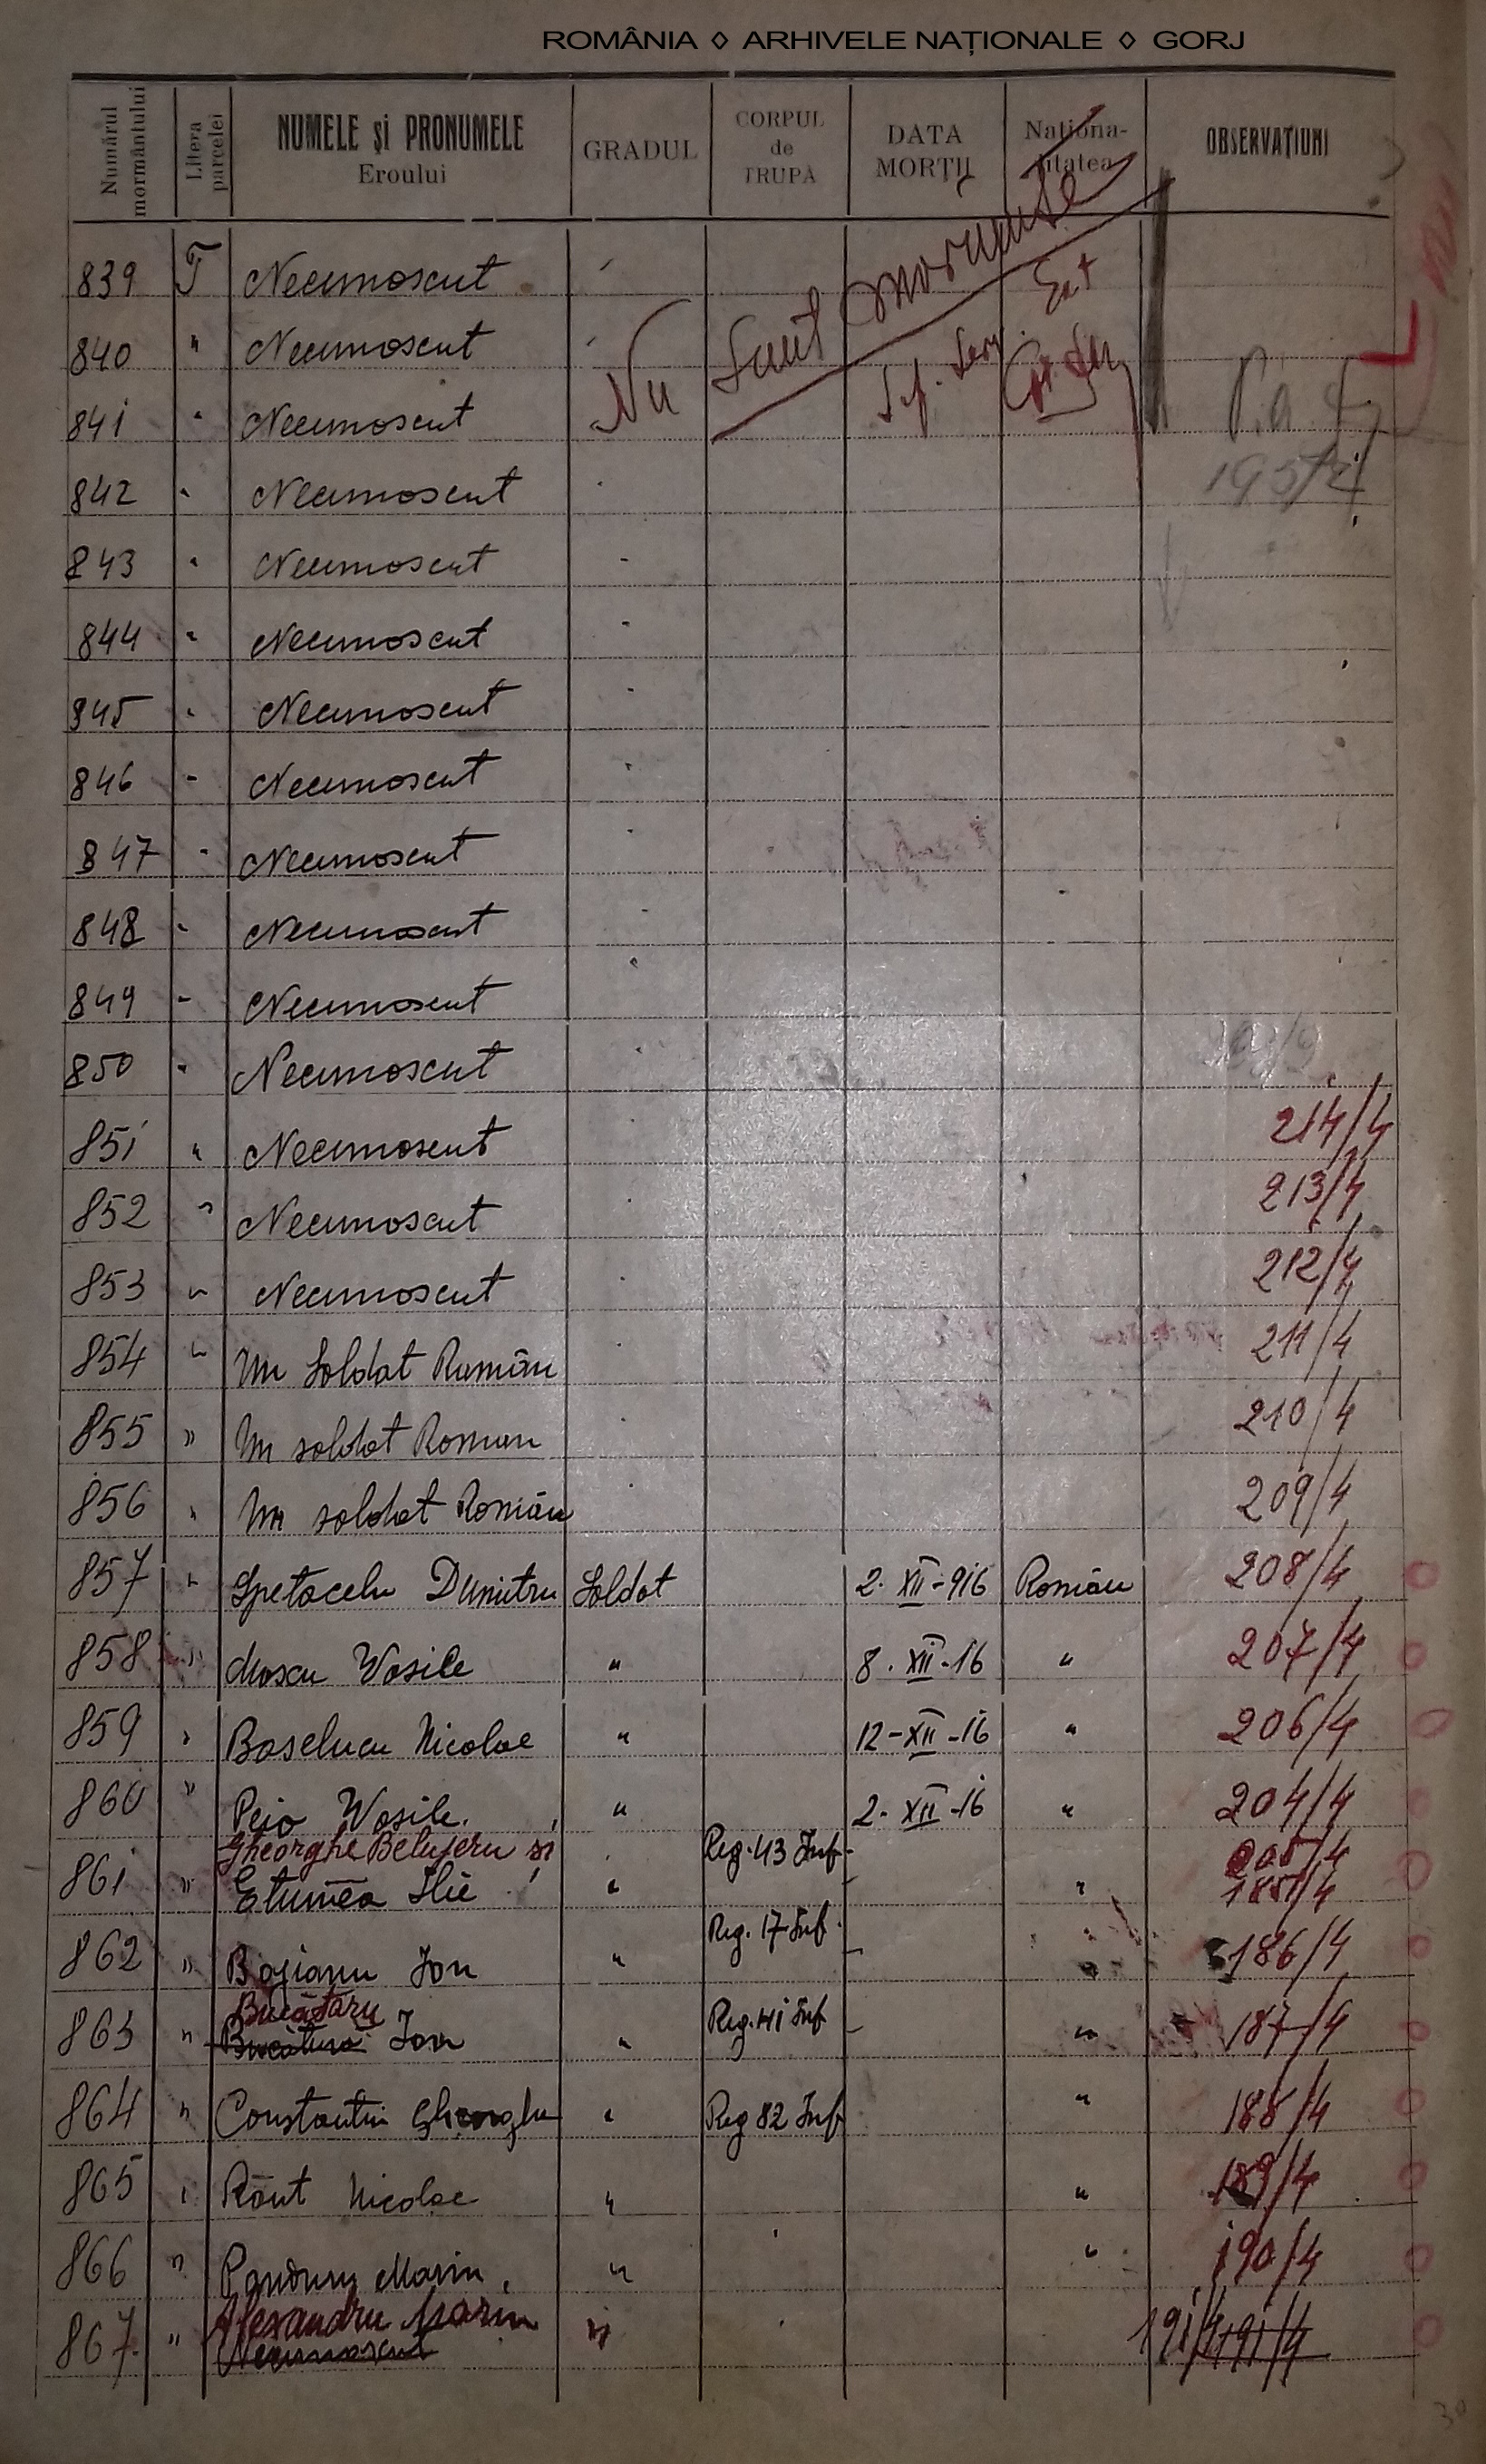 ROMÂNIA ◊ ARHIVELE NAȚIONALE ◊ GORJ
Numărul mormântului Litera parcelei NUMELE și PRONUMELE Eroului GRADUL CORPUL de TRUPĂ DATA MORȚII Naționa-litatea OBSERVAȚIUNI
Nu sunt morminte
839 T Necunoscut
840 " Necunoscut
841 " Necunoscut
842 " Necunoscut
843 " Necunoscut
844 " Necunoscut
845 " Necunoscut
846 " Necunoscut
847 " Necunoscut
848 " Necunoscut
849 " Necunoscut
850 " Necunoscut
851 " Necunoscut 214/4
852 " Necunoscut 213/4
853 " Necunoscut 212/4
854 " Un Soldat Român 211/4
855 " Un soldat Roman 210/4
856 " Un soldat Român 209/4
857 " Spetacelu Dumitru Soldat 2. XII-916 Român 208/4
858 " Moscu Vasile " 8. XII-16 " 207/4
859 " Boselucu Nicolae " 12-XII-16 " 206/4
860 " Peio Vasile. " 2. XII-16 " 204/4
Gheorghe și Reg. 43 Inf - 205/4
861 " Ilie " " 185/4
862 " Bojianu Ion " Reg. 17 Inf - " 186/4
Bucătaru
863 " Bucătura Ion " Reg. 41 Inf - " 187/4
864 " Constantin Gheorghe " Reg 82 Inf " 188/4
865 " Rânt Nicolae " " 189/4
866 " Panduru Marin " " 190/4
Alexandru Marin
867 " Necunoscut " 191/4 191/4